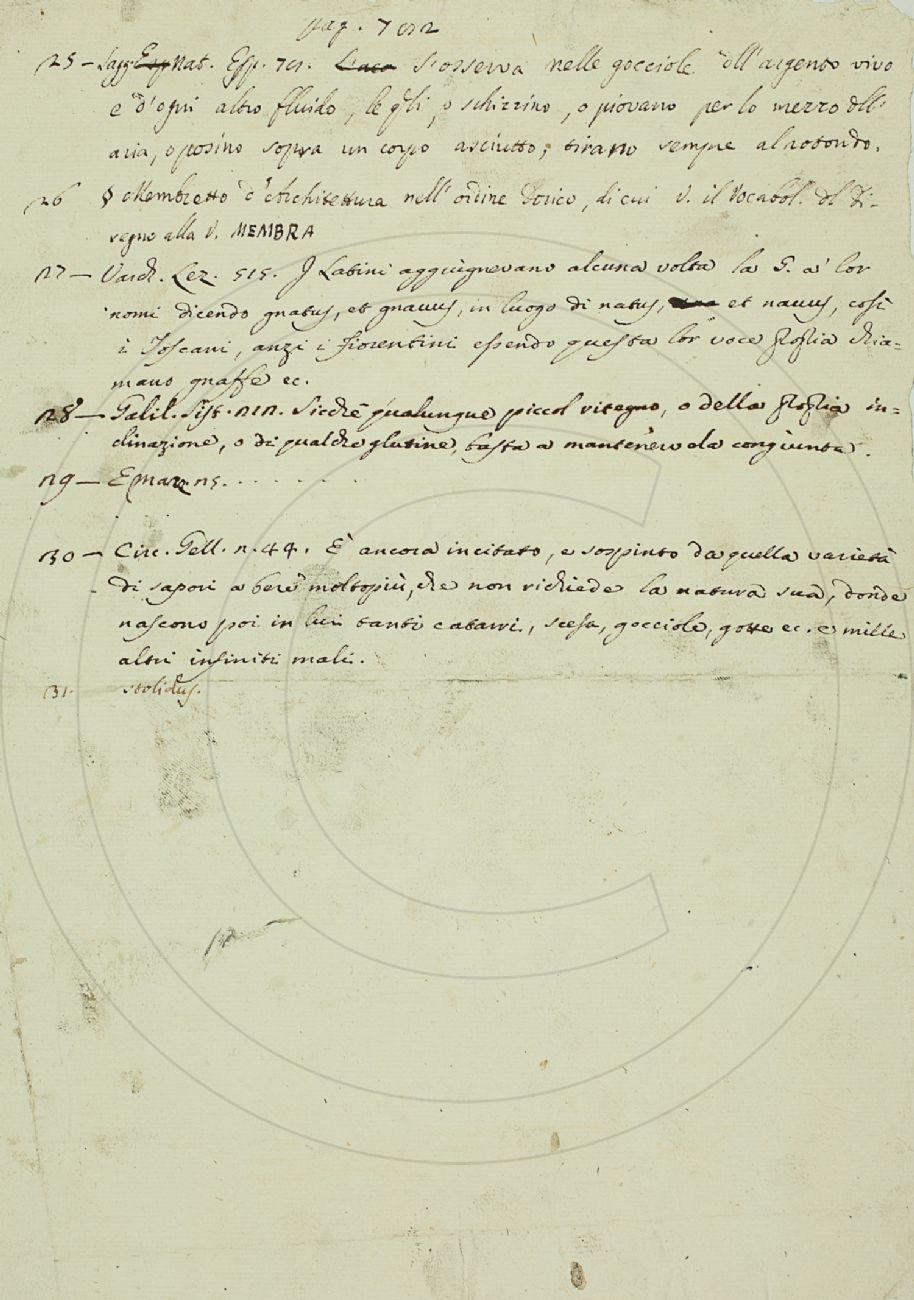 pag. 702
25 — Sagg. Esp. Nat. Esp. 71. L'aco S'osserva nelle gocciole dll' argento vivo
e d'ogni altro fluido, le qli, o schizzino, o piovano per lo mezzo dll'
aria, o posino sopra un corpo asciutto, tirano sempre al rotondo.
26 § Membretto d'Architettura nell' ordine Dorico, di cui v. il Vocabol. dl Di-
segno alla V. MEMBRA
27 — Varch. Lez. 515. I Latini aggiugnevano alcuna volta la G. a' lor
nomi dicendo gnatus, et gnavus, in luogo di natus, et navus, così
i Toscani, anzi i fiorentini essendo questa lor voce stessa chia=
mano gnaffe ec.
28 — Galil. Sist. 212. Sicchè qualunque piccol ritegno, o della stessa in=
clinazione, o di qualche glutine, basta a mantenerla congiunta.
29 — . . . . . . . .
30 — Circ. Gell. 2. 44. È ancora incitato, e sospinto da quella varietà
di sapori a bere molto più, che non richiede la natura sua, donde
nascono poi in lui tanti catarri, scesa, gocciole, gotte ec. e mille
altri infiniti mali.
31. stolidus.